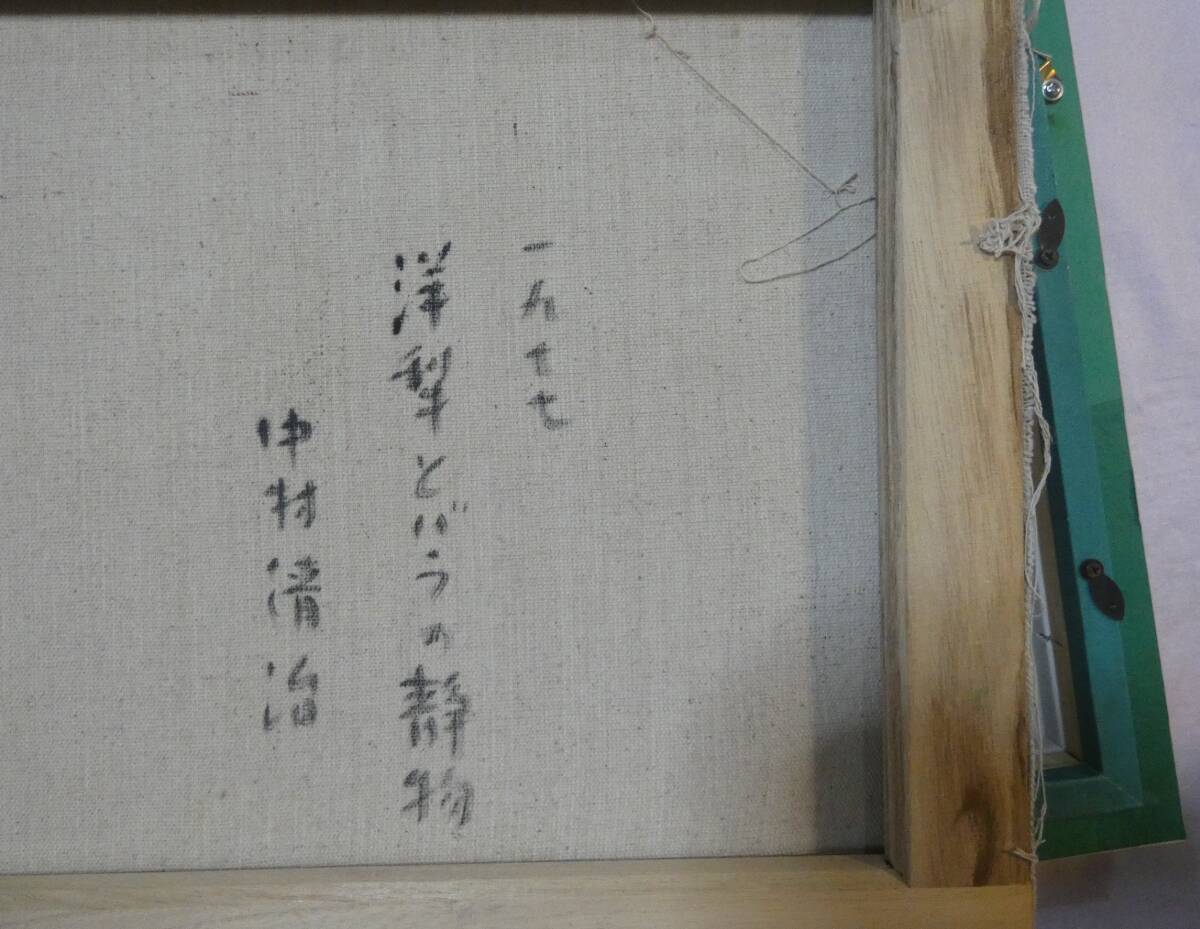 一九七七
洋梨とバラの静物
中村清治